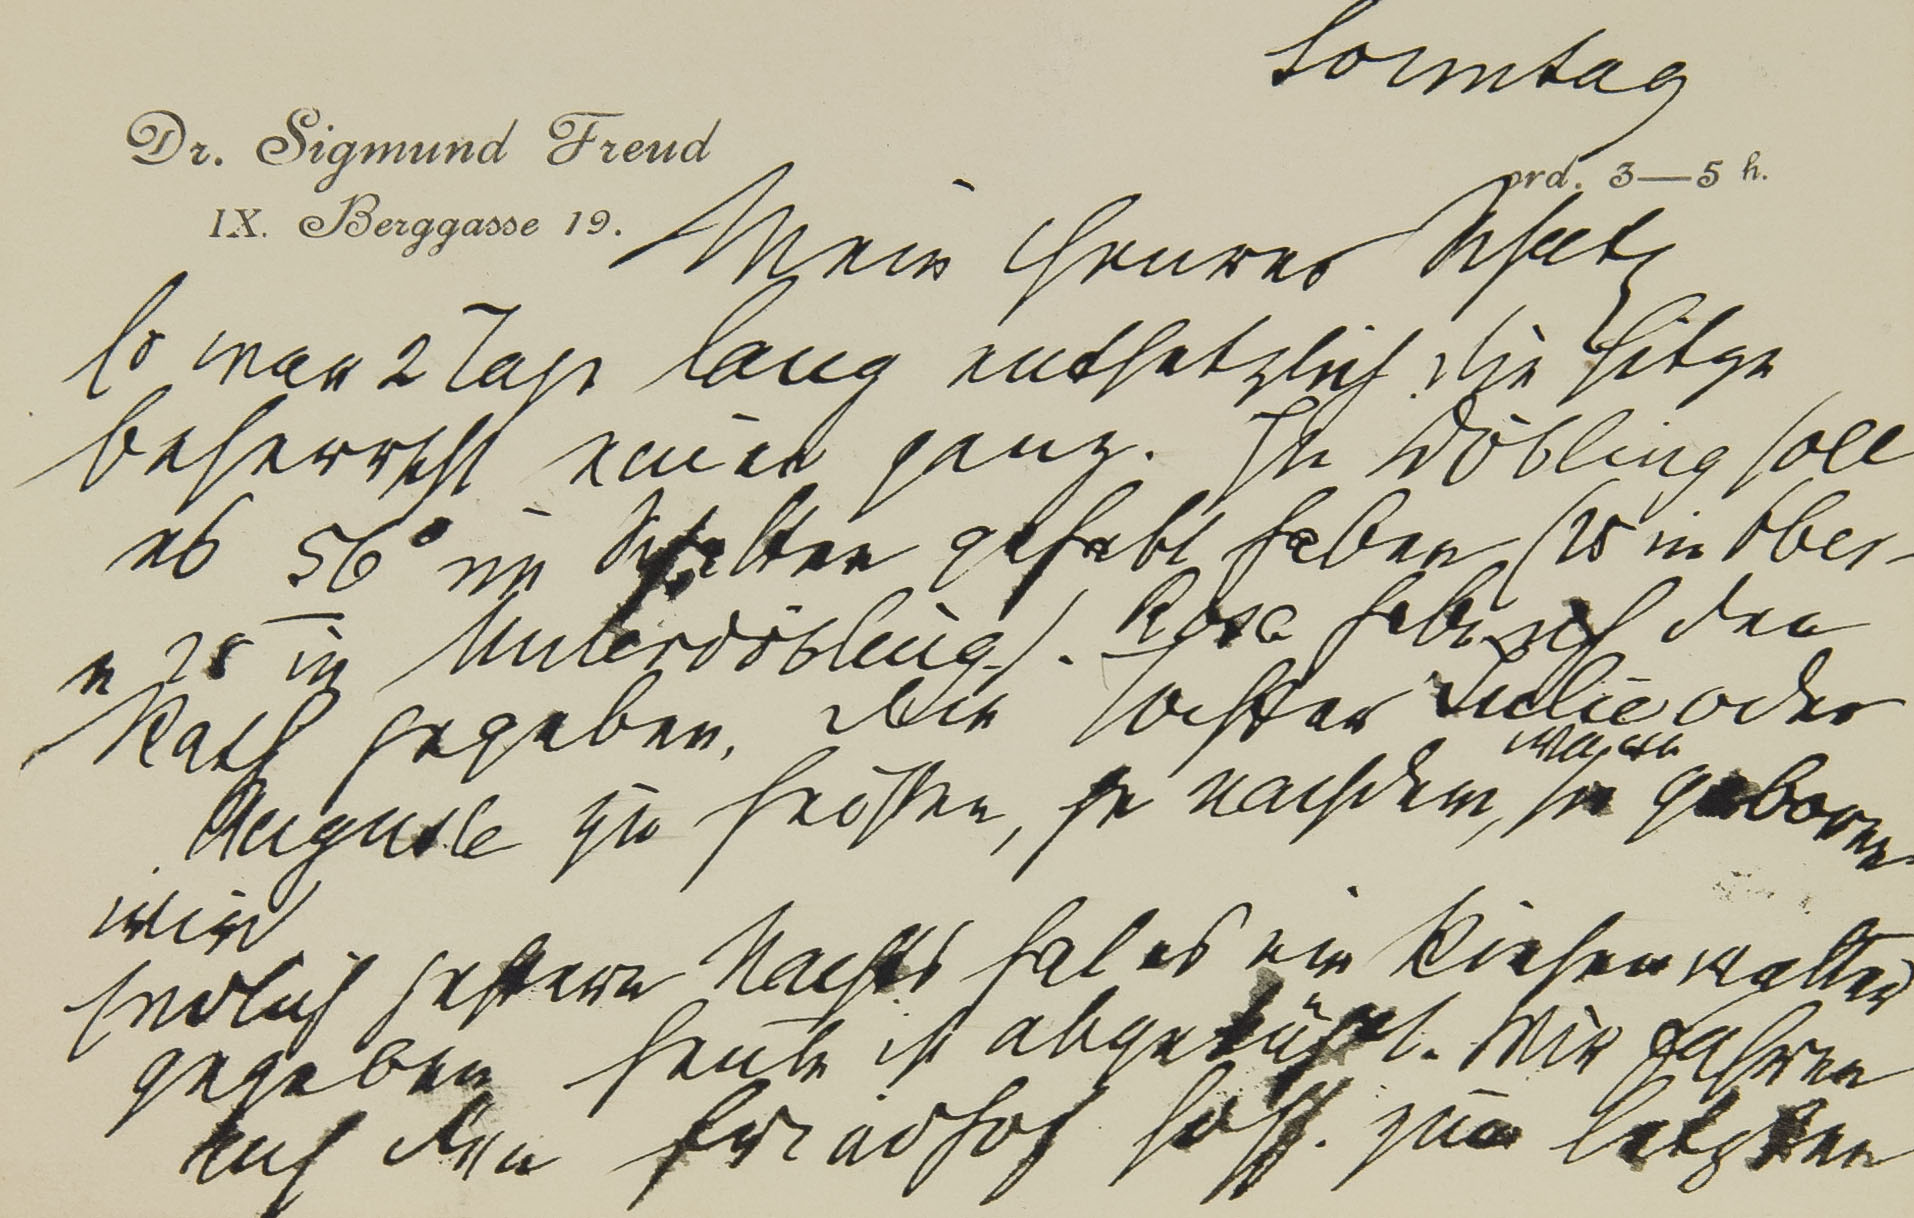 Sonntag
Dr. Sigmund Freud
IX. Berggasse 19.
ord. 3—5 h.
Mein theurer Schatz
Es war 2 Tage lang entsetzlich. die Hitze
beherrscht einen ganz. In Döbling soll
es 56° im Schatten gehabt haben (28 in Ober-
u 28 in Unterdöbling). Rosa habe ich den
Rath gegeben, die Tochter Julie oder
Auguste zu heißen, je nachdem, sie geboren
wann
wird
Endlich gestern Nachts hat es ein Riesen
gegeben heute ist abgekühlt. Wir fahren
auf den Friedhof hoff. zum letzten